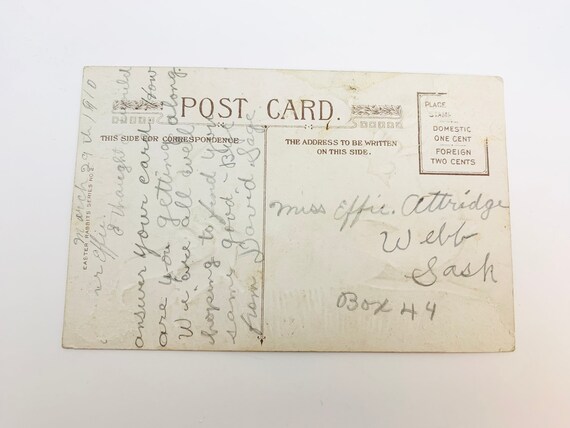 POST CARD.
THIS SIDE FOR CORRESPONDENCE
THE ADDRESS TO BE WRITTEN
ON THIS SIDE.
PLACE
STAMP
DOMESTIC
ONE CENT
FOREIGN
TWO CENTS
EASTER RABBITS SERIES NO.
March 29th 1910
Effie
I thought I would
answer your card. How
are you getting along.
We are all well
hoping to find you
same good-Bye
from David Sage
Miss Effie. Attridge
Webb
Sask
Box 44